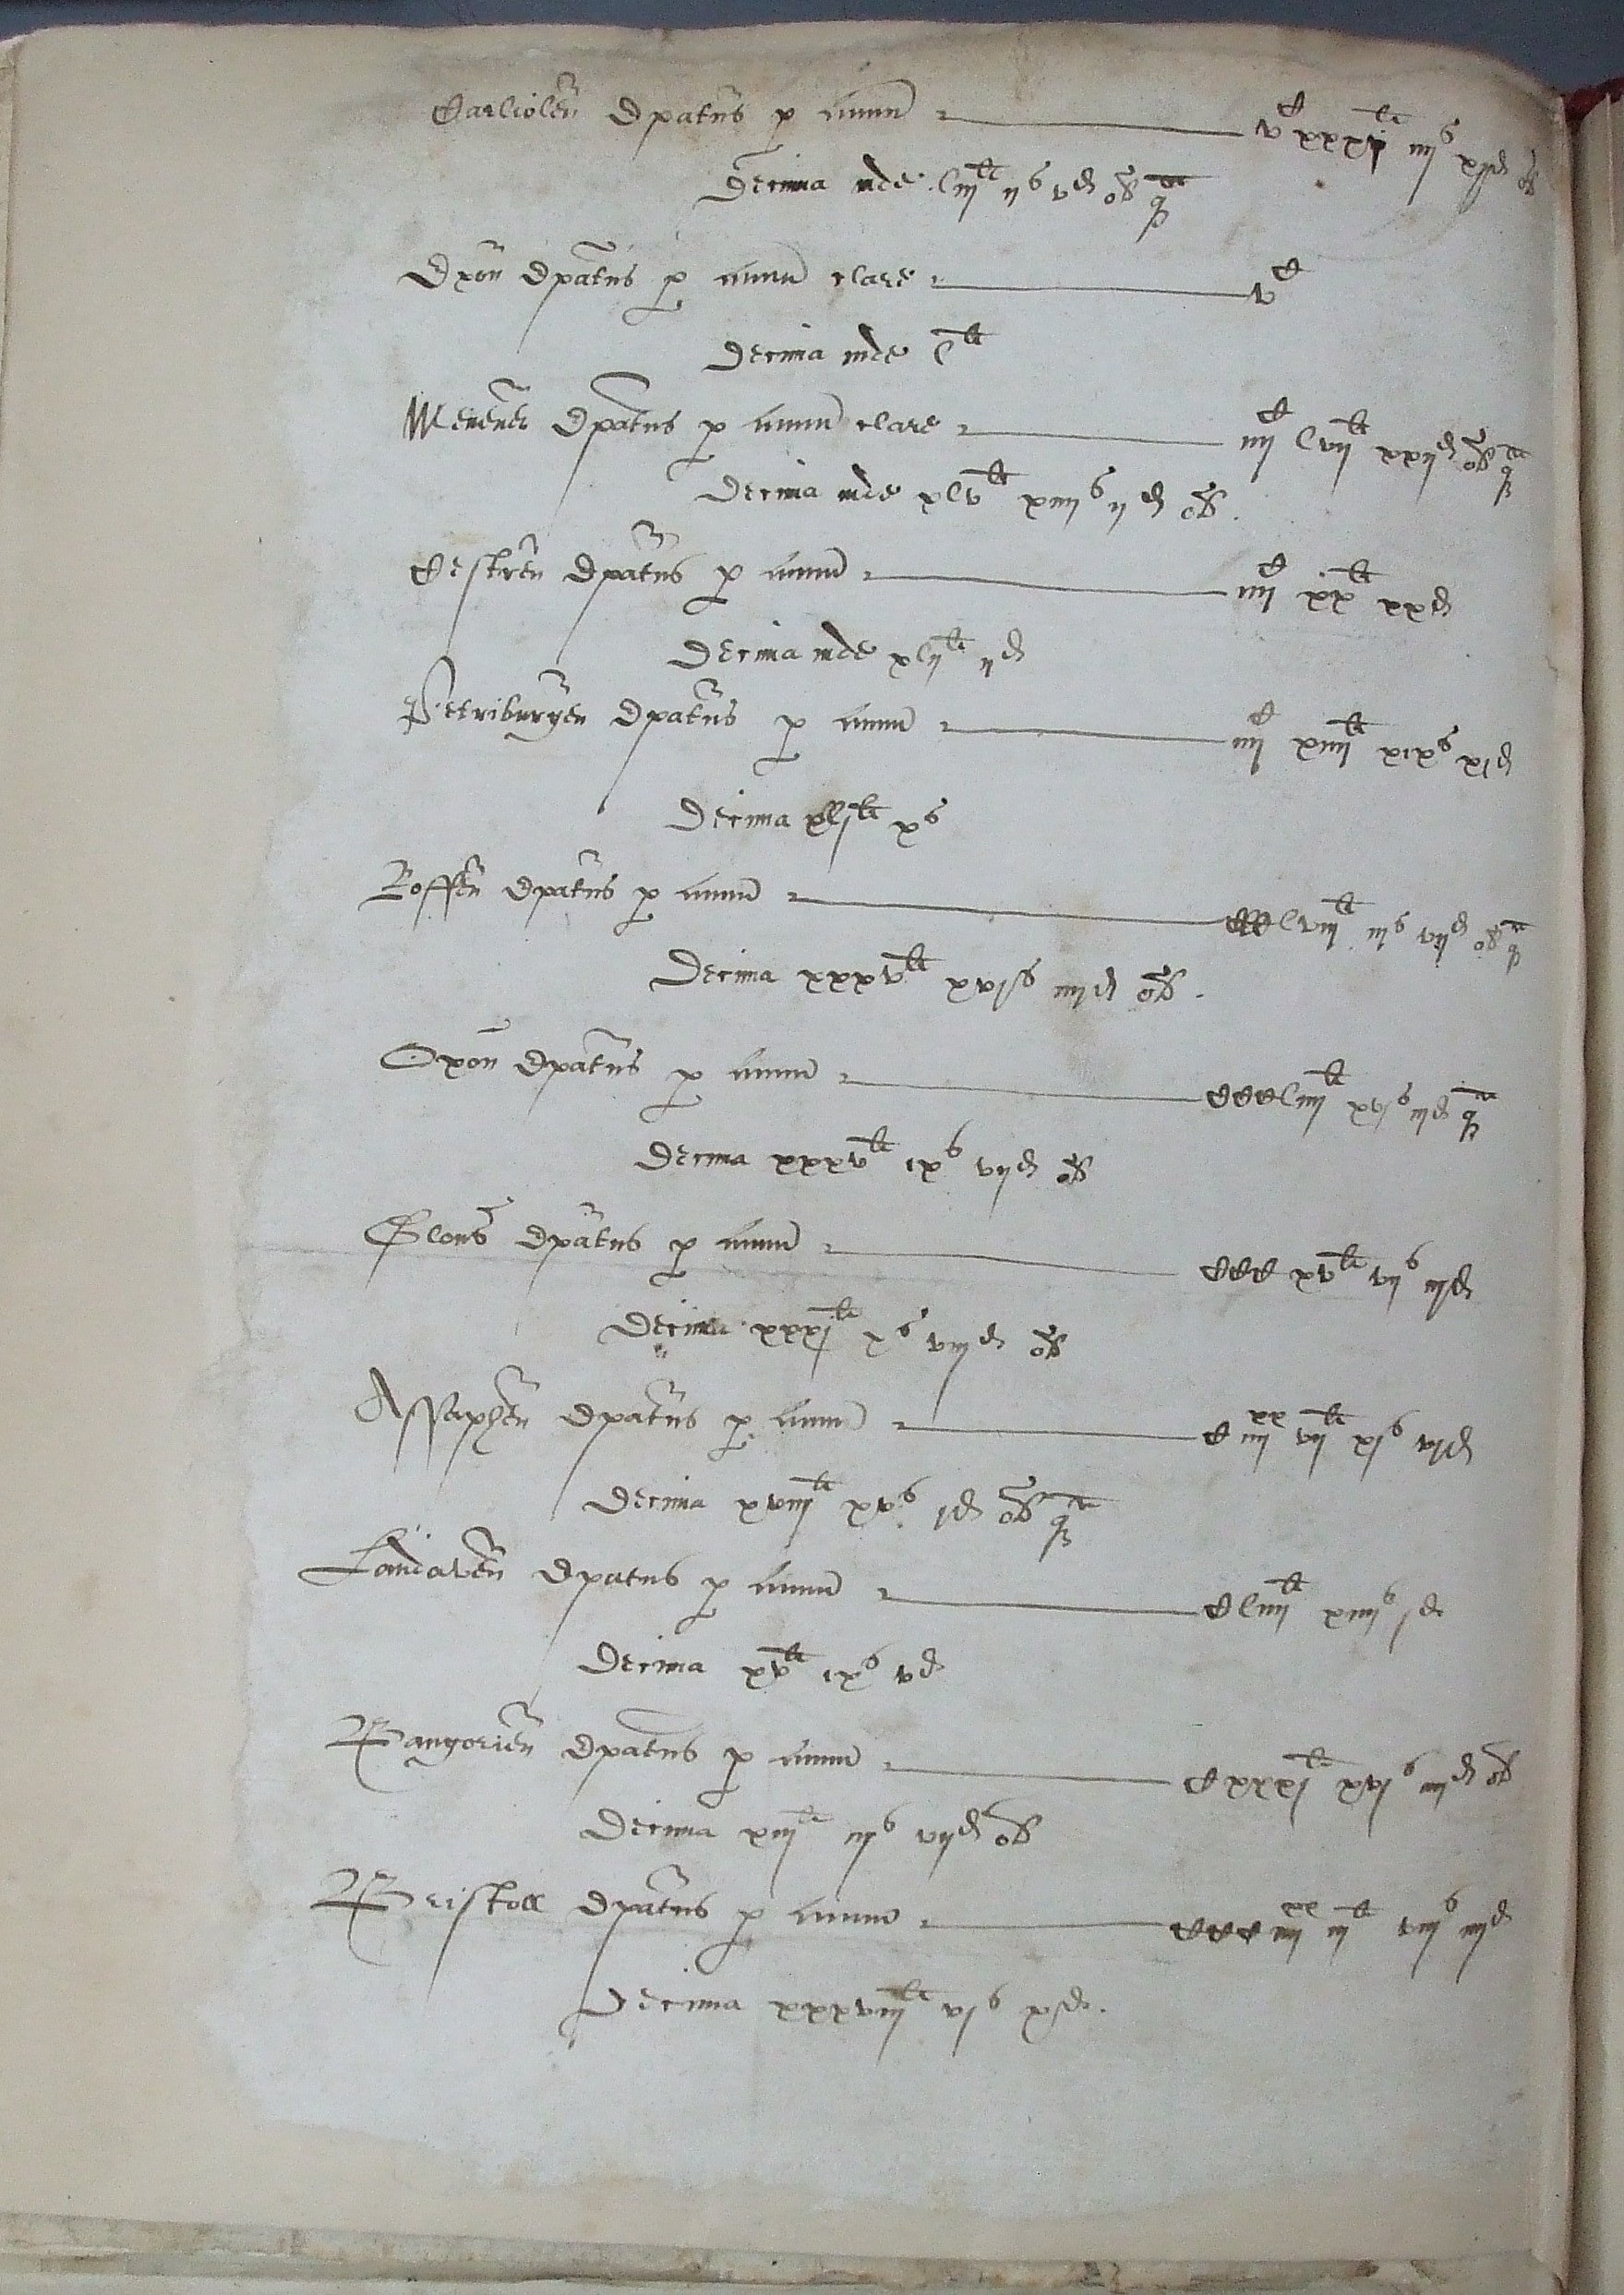 Carliolen Epatus p annu v^c xxxj^li iiij^s xj^d ob
Decima inde liij^li ij^s v^d ob q^a
Exon Epatus p annu clare v^c
Decima inde l^li
Meneueñ Epatus p annu clare iiij^c lvij^li xxij^d ob q^a
Decima inde xlv^li xiiij^s ij^d ob
Cestren Epatus p annu iiij^c xx^li xx^d
Decima inde xlij^li ij^d
Petriburgen Epatus p annu iiij^c xiiij^li xix^s xj^d
Decima xlj^li x^s
Roffen Epatus p annu ccclviij^li iij^s vij^d ob q^a
Decima xxxv^li xvj^s iiij^d ob
Oxon Epatus p annu cccliiij^li xvj^s iij^d q^a
Decima xxxv^li ix^s vij^d ob
Glouc Epatus p annu ccc xv^li vij^s iij^d
Decima xxxj^li x^s viij^d ob
Assaphen Epatus p annu c iiij^xx vij^li xj^s vj^d
Decima xviij^li xv^s j^d ob q^a
Landaven Epatus p annu cliiij^li xiiij^s j^d
Decima xv^li ix^s v^d
Bangorien Epatus p annu cxxxj^li xvj^s iiij^d ob
Decima xiij^li iij^s vij^d ob
Bristoll Epatus p annu ccc iiij^xx iij^li viij^s iiij^d
Decima xxxviij^li vj^s x^d